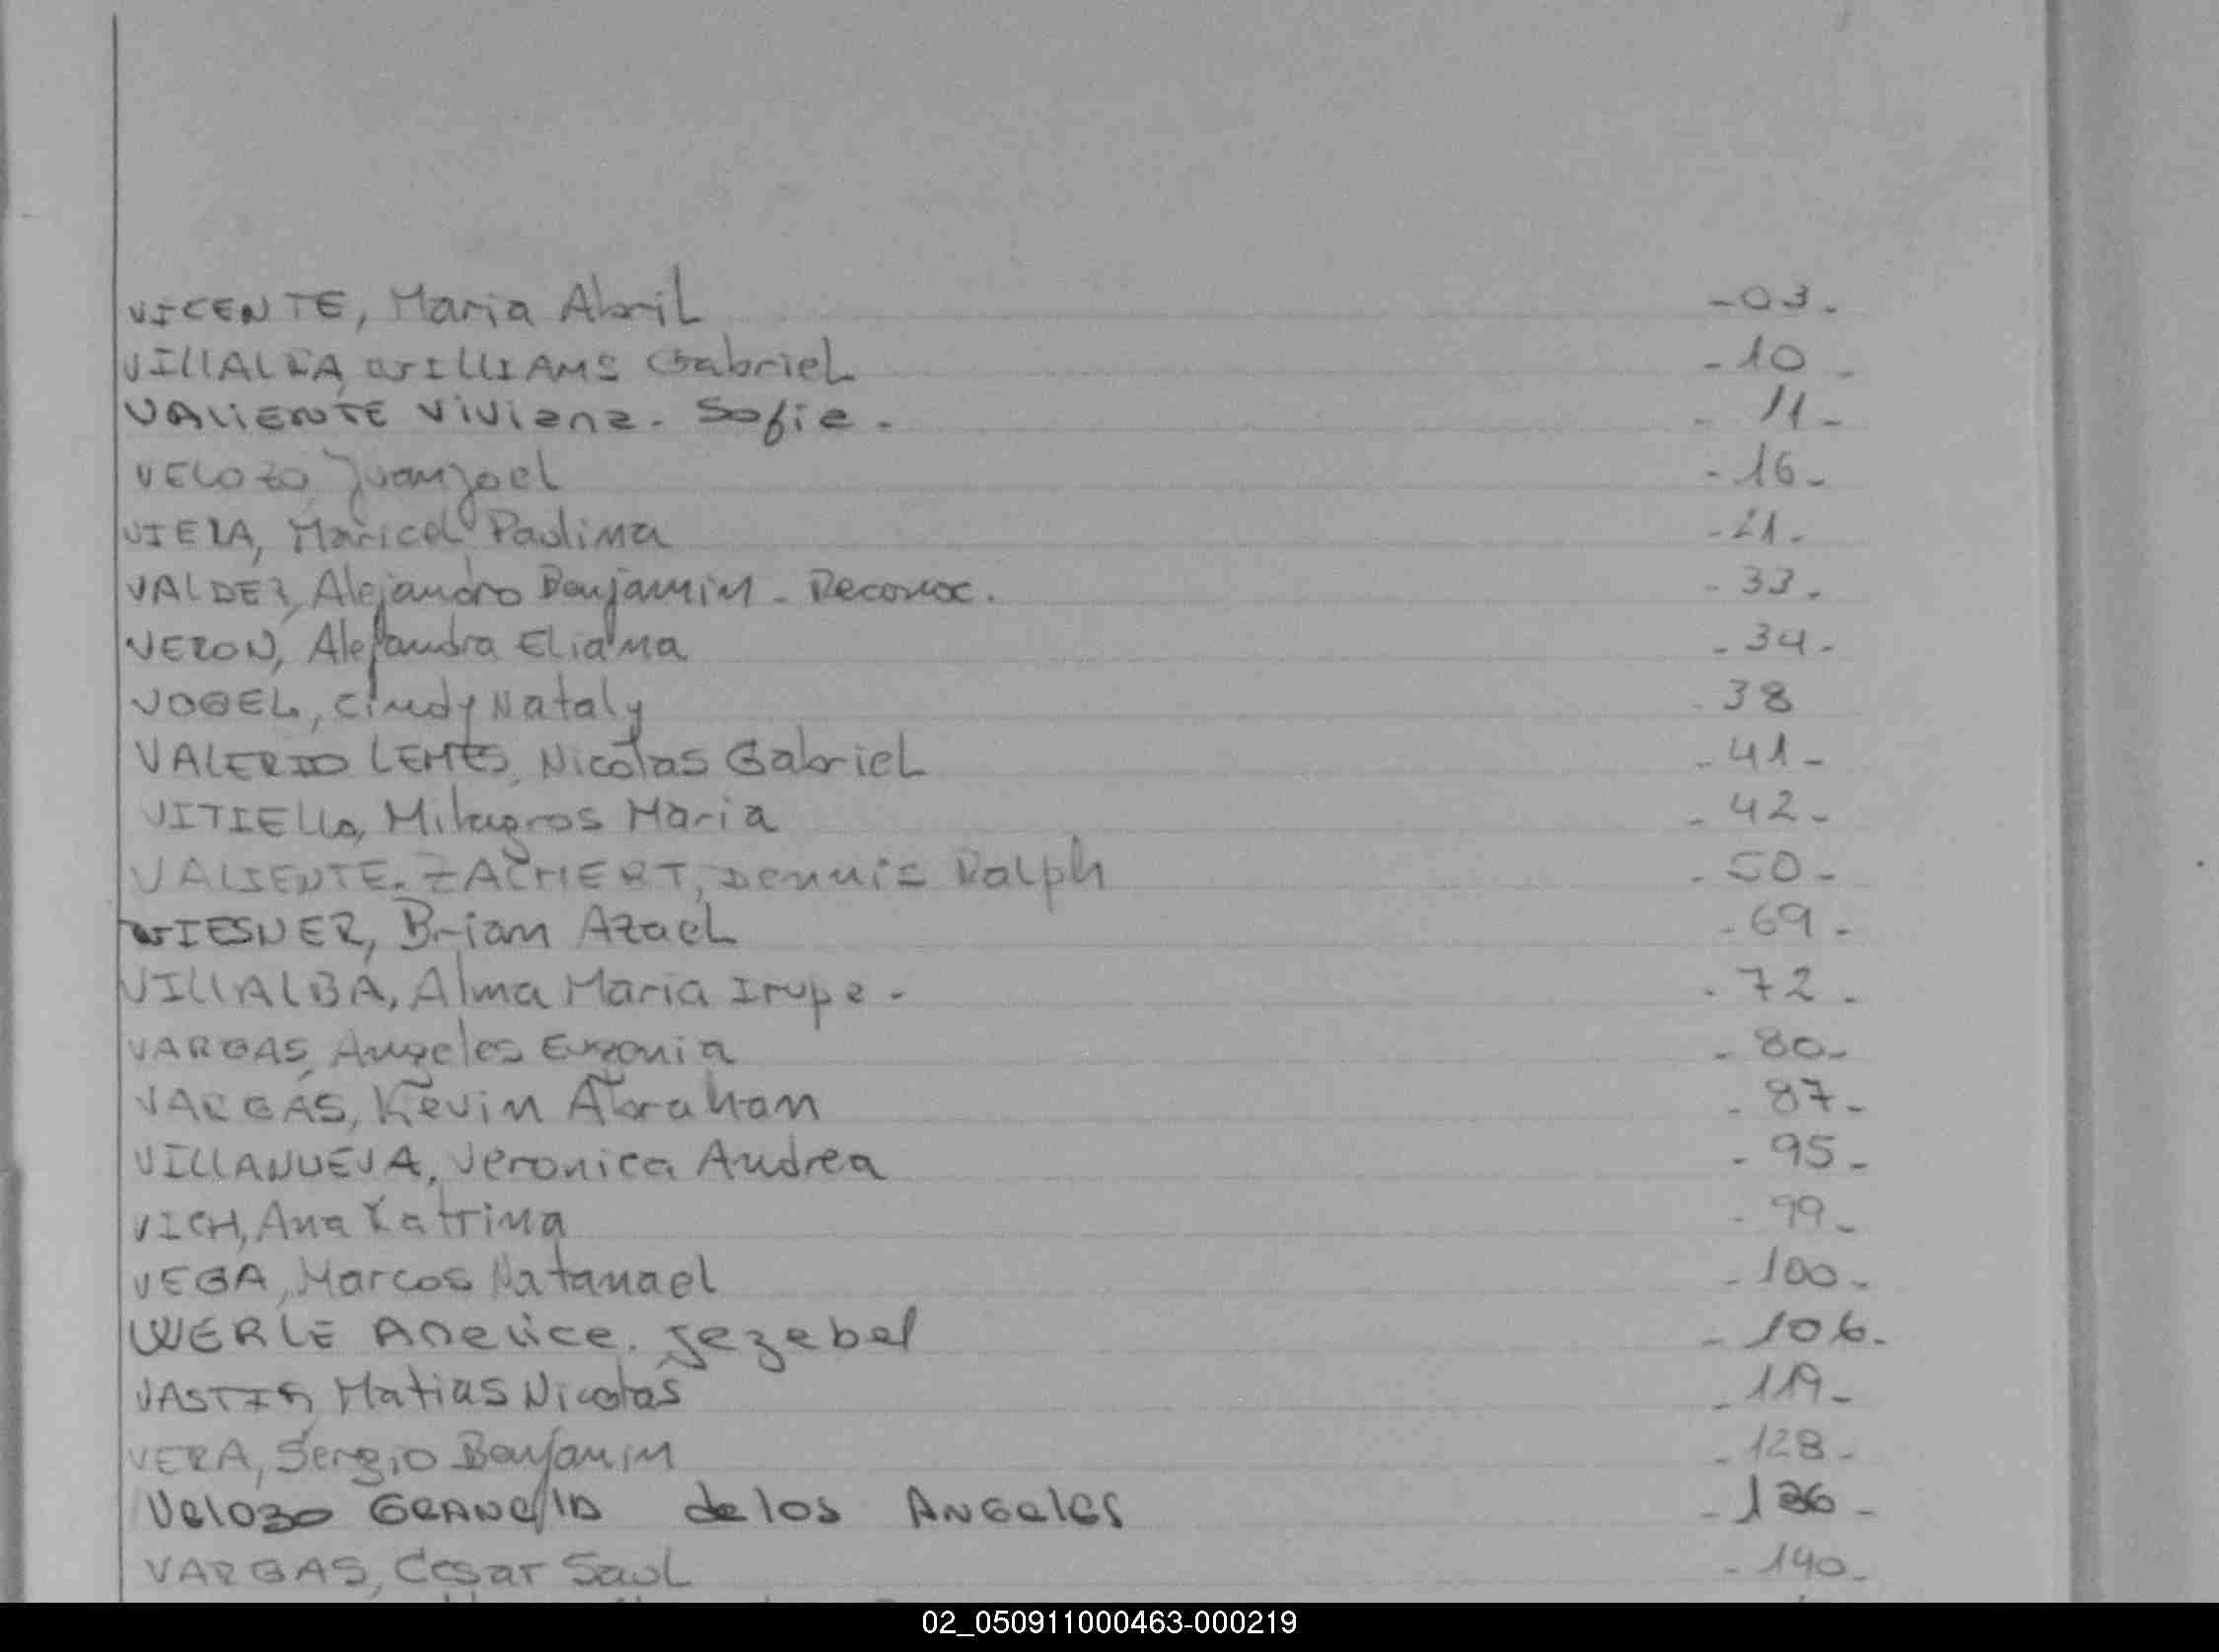 VICENTE, Maria Abril -03-
VILLALBA, WILLIAMS Gabriel -10-
VALIENTE Viviana. Sofia. - 11-
VELOZO, Juan Joel -16-
VIERA, Maricel Paulina -21-
VALDEZ, Alejandro Benjamin - Reconoc. - 33.
VERON, Alejandra Eliana - 34-
VOGEL, Cindy Nataly 38
VALERIO LEMES, Nicolas Gabriel - 41-
VITIELLO, Milagros Maria - 42-
VALIENTE. ZACHERT, Dennis Ralph - 50-
WIESNER, Brian Azael - 69-
VILLALBA, Alma Maria Irupe - - 72-
VARGAS, Angeles Eugenia - 80-
VARGAS, Kevin Abraham - 87-
VILLANUEVA, Veronica Andrea - 95-
VICH, Ana Katrina - 99-
VEGA, Marcos Natanael - 100-
WERLE Anelice. Jezebel - 106-
Matias Nicolas - 119-
VERA, Sergio Benjamin - 128-
Velozo de los ANGeles - 136-
VARGAS, Cesar Saul - 140-
02_050911000463-000219